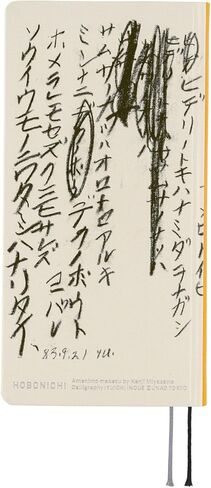 ヒデリノトキハナミダヲナガシ
サムサノナツハオロオロアルキ
ミンナニデクノボウト
ヨバレ
ホメラレモセズクニモサレズ
ソウイウモノニワタシハナリタイ
83.9.21 YU.
HOBONICHI
Amenimo makezu by Kenji Miyazawa
Calligraphy YU-ICHI INOUE ©UNAC TOKYO